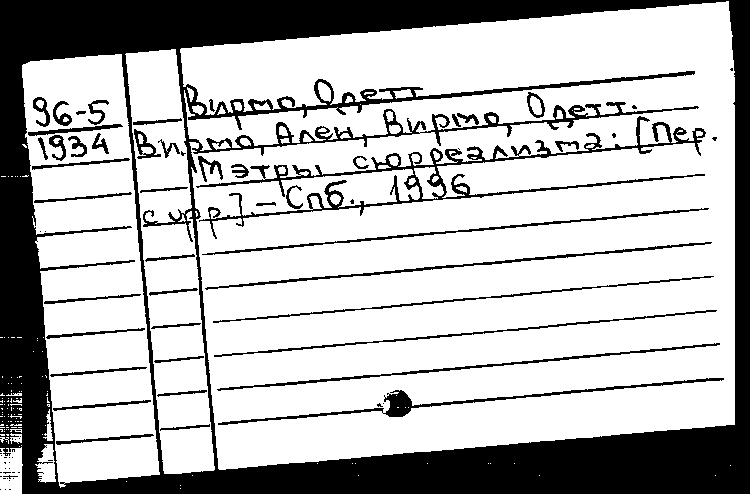 96-5 Вирмо, Одетт
1934 Вирмо, Ален, Вирмо, Одетт.
Мэтры сюрреализма: [Пер.
с фр.]. – Спб., 1996